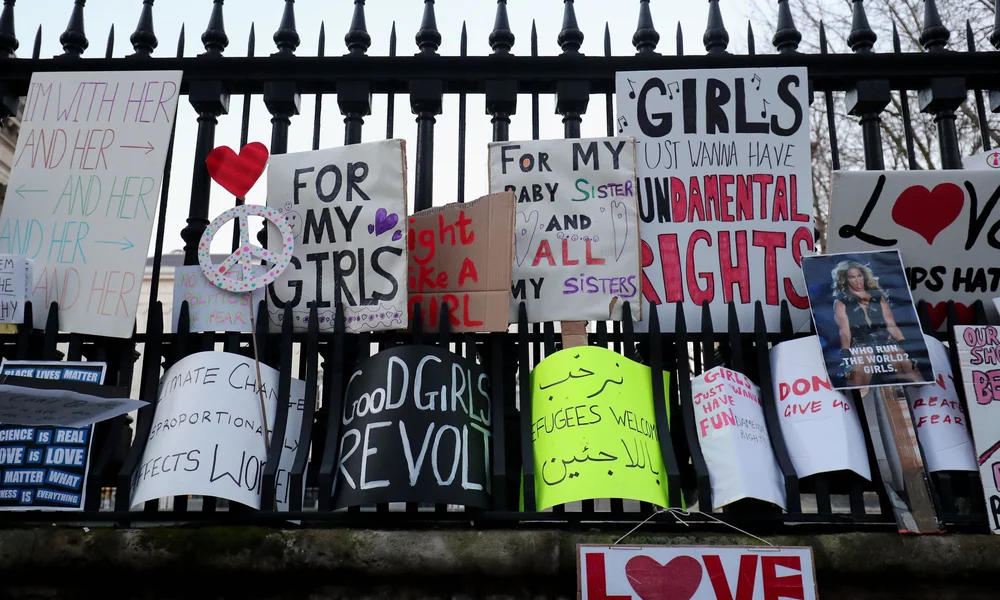 I'M WITH HER
AND HER →
← AND HER
AND HER →
← AND HER
FOR
MY
GIRLS
ight
like A
GIRL
FOR MY
BABY SISTER
AND
ALL
MY SISTERS
GIRLS
JUST WANNA HAVE
FUNDAMENTAL
RIGHTS
LOV
HAT
NO
POLITICS
OF FEAR
WHO RUN THE
WORLD?
GIRLS.
BLACK LIVES MATTER
SCIENCE IS REAL
LOVE IS LOVE
MATTER WHAT
NESS IS EVERYTHING
CLIMATE CHAN
DISPROPORTIONA
AFFECTS WOM
GOOD GIRLS
REVOLT
نرحب
REFUGEES WELCOME
باللاجئين
GIRLS
JUST WANNA
HAVE
FUNDAMENTAL
RIGHTS
DON
GIVE UP
FEAR
OUR
LOVE